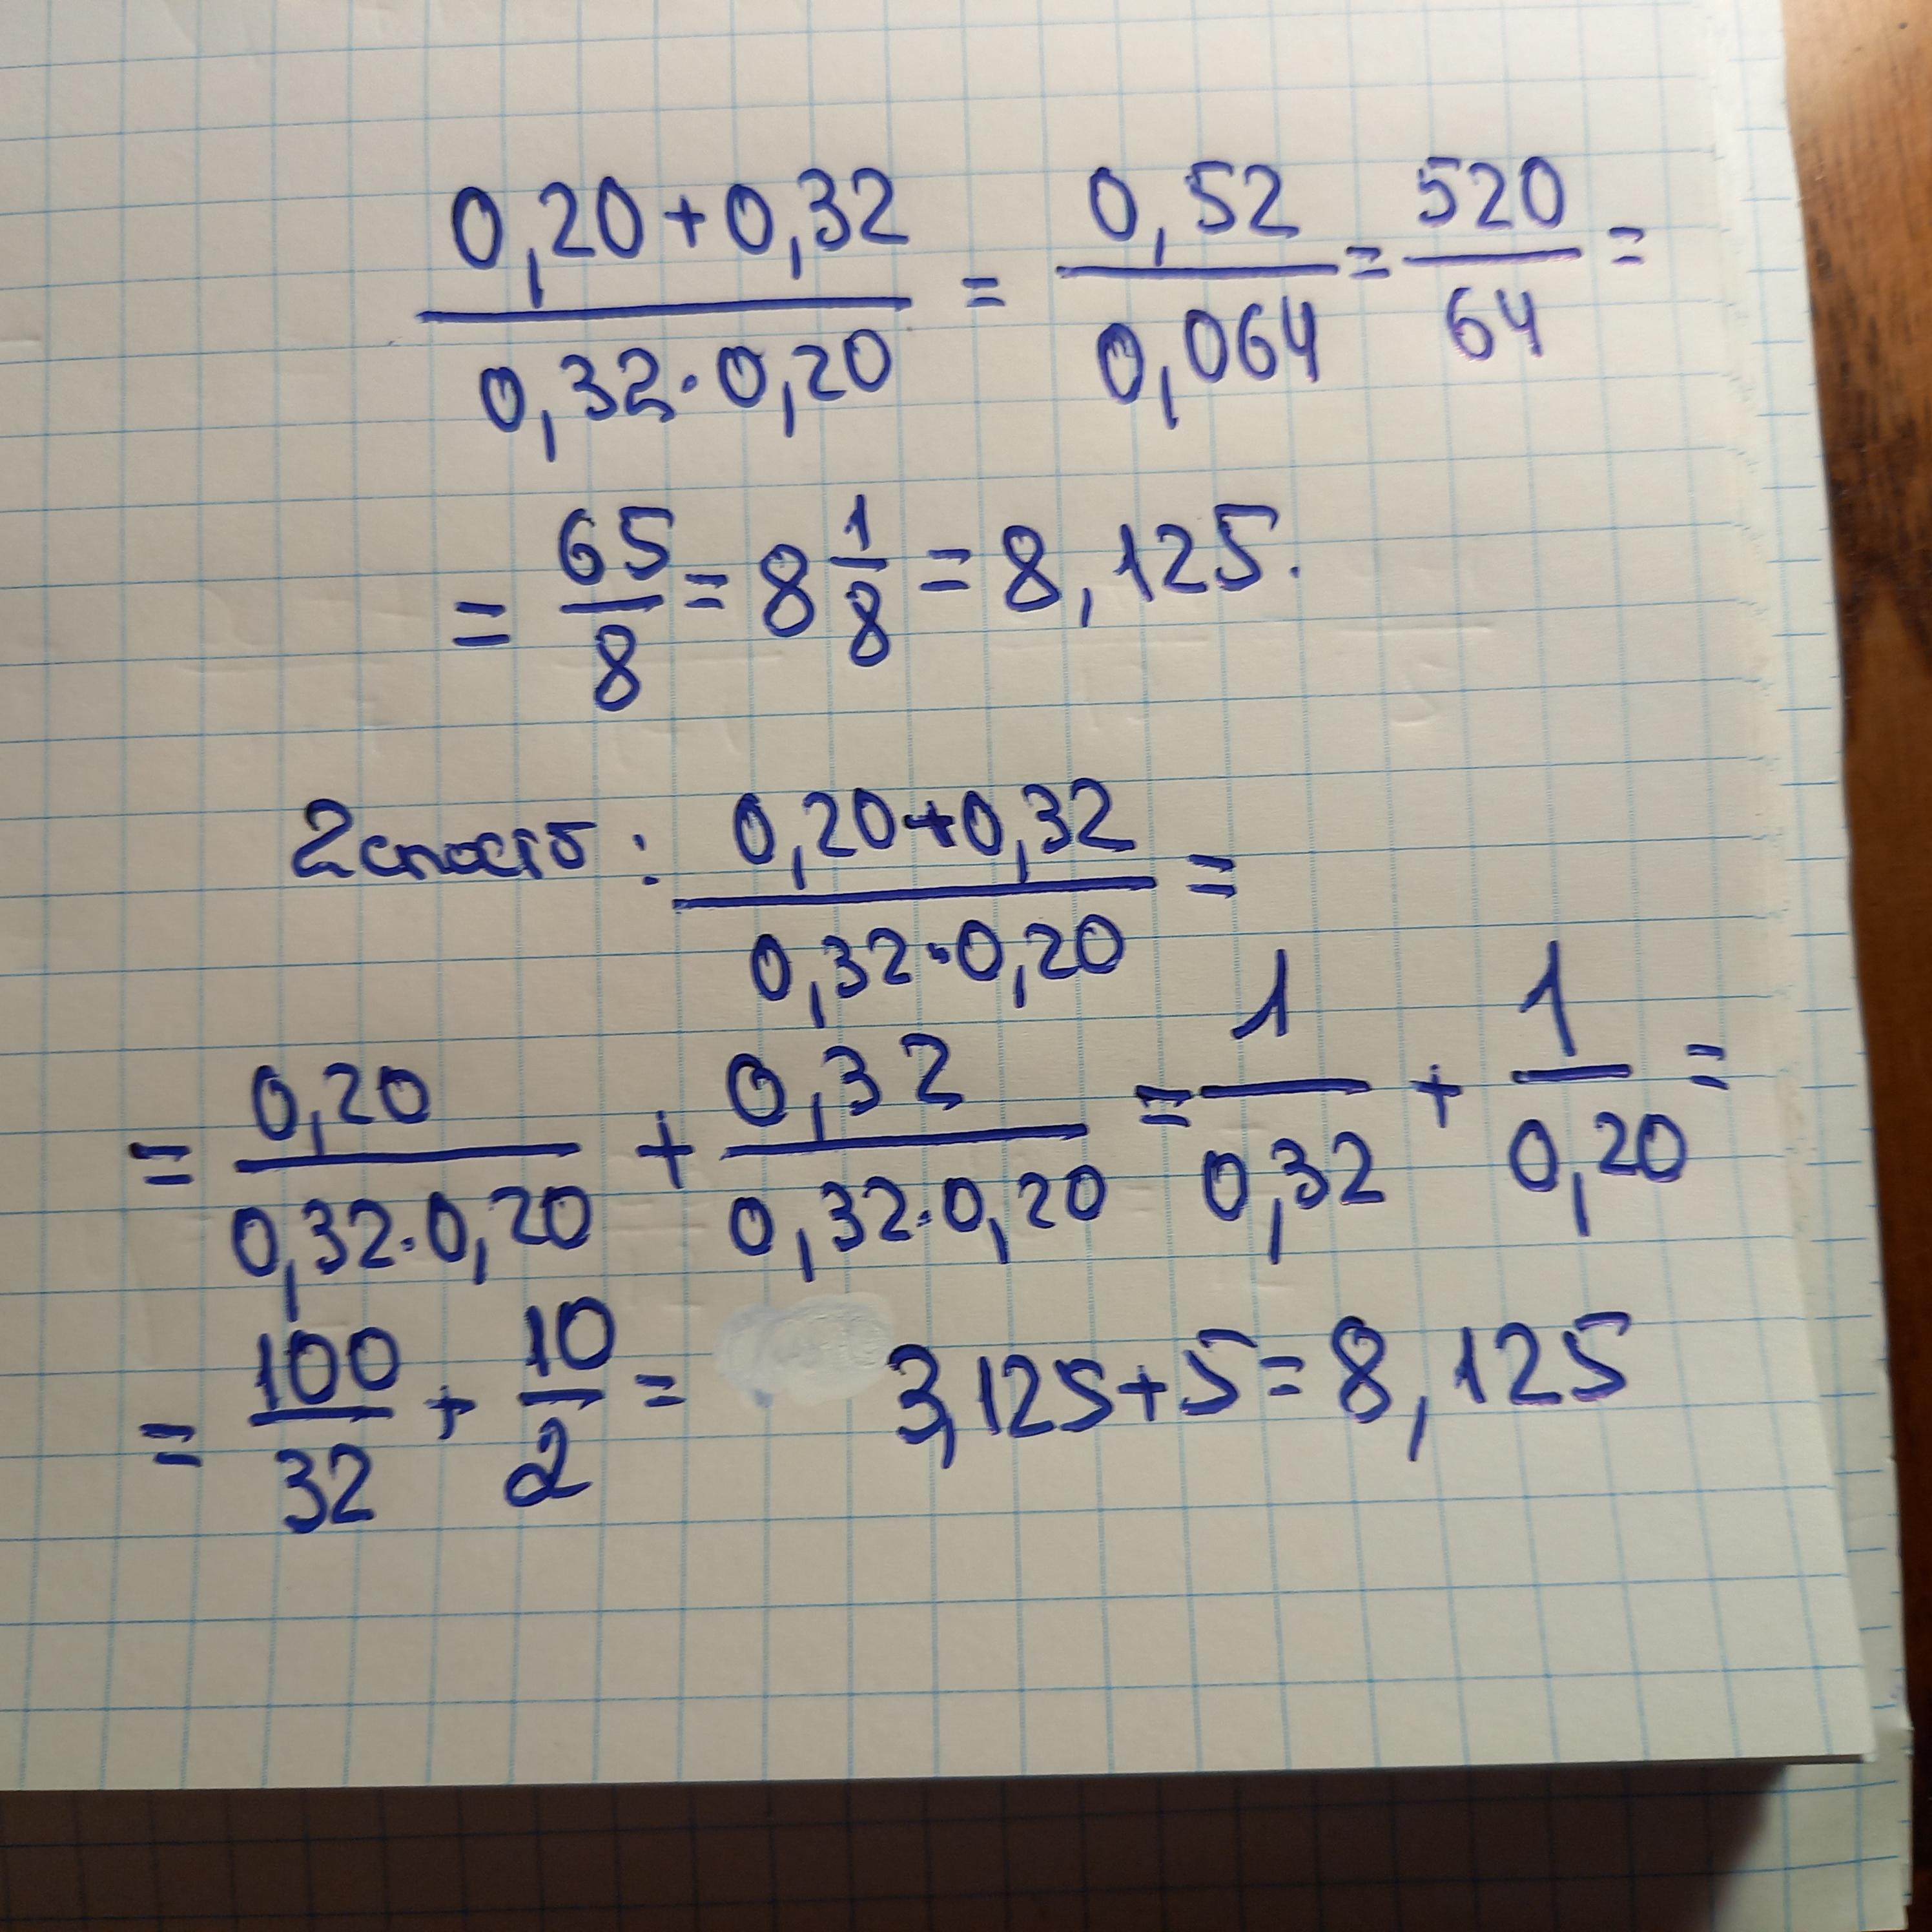 (0,20+0,32)/(0,32·0,20) = 0,52/0,064 = 520/64 =
= 65/8 = 8 1/8 = 8,125.
2 способ: (0,20+0,32)/(0,32·0,20) =
= 0,20/(0,32·0,20) + 0,32/(0,32·0,20) = 1/0,32 + 1/0,20 =
= 100/32 + 10/2 = 3,125+5=8,125